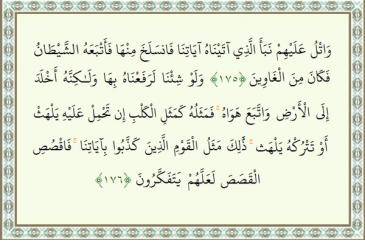 وَاتْلُ عَلَيْهِمْ نَبَأَ الَّذِي آتَيْنَاهُ آيَاتِنَا فَانسَلَخَ مِنْهَا فَأَتْبَعَهُ الشَّيْطَانُ
فَكَانَ مِنَ الْغَاوِينَ ﴿١٧٥﴾ وَلَوْ شِئْنَا لَرَفَعْنَاهُ بِهَا وَلَـٰكِنَّهُ أَخْلَدَ
إِلَى الْأَرْضِ وَاتَّبَعَ هَوَاهُ ۚ فَمَثَلُهُ كَمَثَلِ الْكَلْبِ إِن تَحْمِلْ عَلَيْهِ يَلْهَثْ
أَوْ تَتْرُكْهُ يَلْهَث ۚ ذَّٰلِكَ مَثَلُ الْقَوْمِ الَّذِينَ كَذَّبُوا بِآيَاتِنَا ۚ فَاقْصُصِ
الْقَصَصَ لَعَلَّهُمْ يَتَفَكَّرُونَ ﴿١٧٦﴾